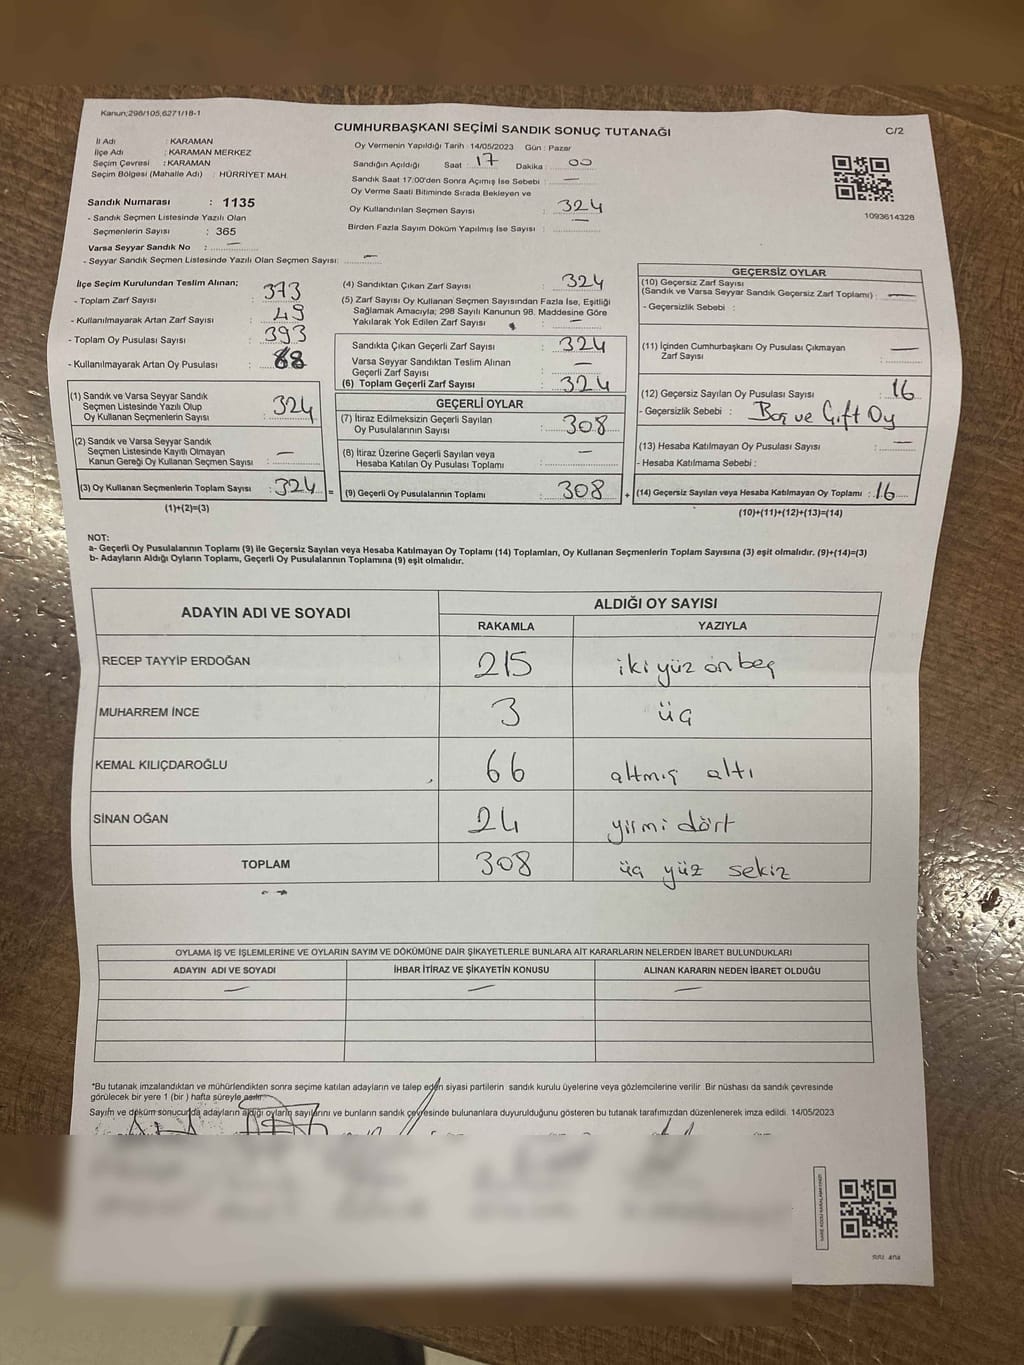 Kanun;298/105,6271/18-1
CUMHURBAŞKANI SEÇİMİ SANDIK SONUÇ TUTANAĞI
C/2
İl Adı : KARAMAN
İlçe Adı : KARAMAN MERKEZ
Seçim Çevresi : KARAMAN
Seçim Bölgesi (Mahalle Adı) : HÜRRİYET MAH.
Sandık Numarası : 1135
- Sandık Seçmen Listesinde Yazılı Olan
Seçmenlerin Sayısı : 365
Varsa Seyyar Sandık No : —
- Seyyar Sandık Seçmen Listesinde Yazılı Olan Seçmen Sayısı: —
Oy Vermenin Yapıldığı Tarih : 14/05/2023 Gün : Pazar
Sandığın Açıldığı Saat : 17 Dakika : 00
Sandık Saat 17:00'den Sonra Açımış İse Sebebi : —
Oy Verme Saati Bitiminde Sırada Bekleyen ve
Oy Kullandırılan Seçmen Sayısı : 324
Birden Fazla Sayım Döküm Yapılmış İse Sayısı : —
1093614328
İlçe Seçim Kurulundan Teslim Alınan;
- Toplam Zarf Sayısı : 373
- Kullanılmayarak Artan Zarf Sayısı : 49
- Toplam Oy Pusulası Sayısı : 393
- Kullanılmayarak Artan Oy Pusulası :
(1) Sandık ve Varsa Seyyar Sandık
Seçmen Listesinde Yazılı Olup
Oy Kullanan Seçmenlerin Sayısı : 324
(2) Sandık ve Varsa Seyyar Sandık
Seçmen Listesinde Kayıtlı Olmayan
Kanun Gereği Oy Kullanan Seçmen Sayısı : —
(3) Oy Kullanan Seçmenlerin Toplam Sayısı : 324 =
(1)+(2)=(3)
(4) Sandıktan Çıkan Zarf Sayısı : 324
(5) Zarf Sayısı Oy Kullanan Seçmen Sayısından Fazla İse, Eşitliği
Sağlamak Amacıyla; 298 Sayılı Kanunun 98. Maddesine Göre
Yakılarak Yok Edilen Zarf Sayısı : —
Sandıkta Çıkan Geçerli Zarf Sayısı : 324
Varsa Seyyar Sandıktan Teslim Alınan
Geçerli Zarf Sayısı : —
(6) Toplam Geçerli Zarf Sayısı : 324
GEÇERLİ OYLAR
(7) İtiraz Edilmeksizin Geçerli Sayılan
Oy Pusulalarının Sayısı : 308
(8) İtiraz Üzerine Geçerli Sayılan veya
Hesaba Katılan Oy Pusulası Toplamı : —
(9) Geçerli Oy Pusulalarının Toplamı : 308 +
GEÇERSİZ OYLAR
(10) Geçersiz Zarf Sayısı
(Sandık ve Varsa Seyyar Sandık Geçersiz Zarf Toplamı) : —
- Geçersizlik Sebebi :
(11) İçinden Cumhurbaşkanı Oy Pusulası Çıkmayan
Zarf Sayısı : —
(12) Geçersiz Sayılan Oy Pusulası Sayısı : 16
- Geçersizlik Sebebi : Boş ve Çift Oy
(13) Hesaba Katılmayan Oy Pusulası Sayısı : —
- Hesaba Katılmama Sebebi :
(14) Geçersiz Sayılan veya Hesaba Katılmayan Oy Toplamı : 16
(10)+(11)+(12)+(13)=(14)
NOT:
a- Geçerli Oy Pusulalarının Toplamı (9) ile Geçersiz Sayılan veya Hesaba Katılmayan Oy Toplamı (14) Toplamları, Oy Kullanan Seçmenlerin Toplam Sayısına (3) eşit olmalıdır. (9)+(14)=(3)
b- Adayların Aldığı Oyların Toplamı, Geçerli Oy Pusulalarının Toplamına (9) eşit olmalıdır.
ADAYIN ADI VE SOYADI ALDIĞI OY SAYISI
RAKAMLA YAZIYLA
RECEP TAYYİP ERDOĞAN 215 iki yüz on beş
MUHARREM İNCE 3 üç
KEMAL KILIÇDAROĞLU 66 altmış altı
SİNAN OĞAN 24 yirmi dört
TOPLAM 308 üç yüz sekiz
OYLAMA İŞ VE İŞLEMLERİNE VE OYLARIN SAYIM VE DÖKÜMÜNE DAİR ŞİKAYETLERLE BUNLARA AİT KARARLARIN NELERDEN İBARET BULUNDUKLARI
ADAYIN ADI VE SOYADI İHBAR İTİRAZ VE ŞİKAYETİN KONUSU ALINAN KARARIN NEDEN İBARET OLDUĞU
— — —
*Bu tutanak imzalandıktan ve mühürlendikten sonra seçime katılan adayların ve talep eden siyasi partilerin sandık kurulu üyelerine veya gözlemcilerine verilir. Bir nüshası da sandık çevresinde
görülecek bir yere 1 (bir ) hafta süreyle asılır
Sayım ve döküm sonucunda adayların aldığı oyların sayılarını ve bunların sandık çevresinde bulunanlara duyurulduğunu gösteren bu tutanak tarafımızdan düzenlenerek imza edildi. 14/05/2023